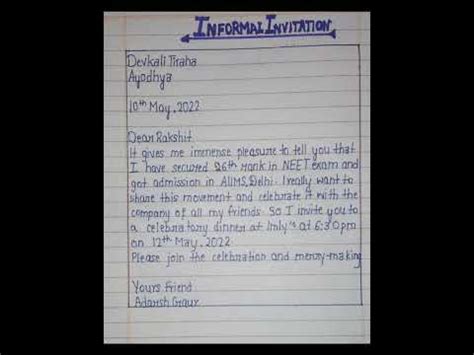 INFORMAL INVITATION
Devkali Tiraha
Ayodhya
10th May, 2022
Dear Rakshit
It gives me imense pleasure to tell you that
I have secured 26th rank in NEET exam and
got admission in AIIMS, Delhi. I really want to
share this movement and celebrate it with the
company of all my friends. So I invite you to
a celebratory dinner at Imly's at 6:30pm
on 12th May, 2022
Please join the celebration and merry-making
Yours Friend
Adarsh Gaur